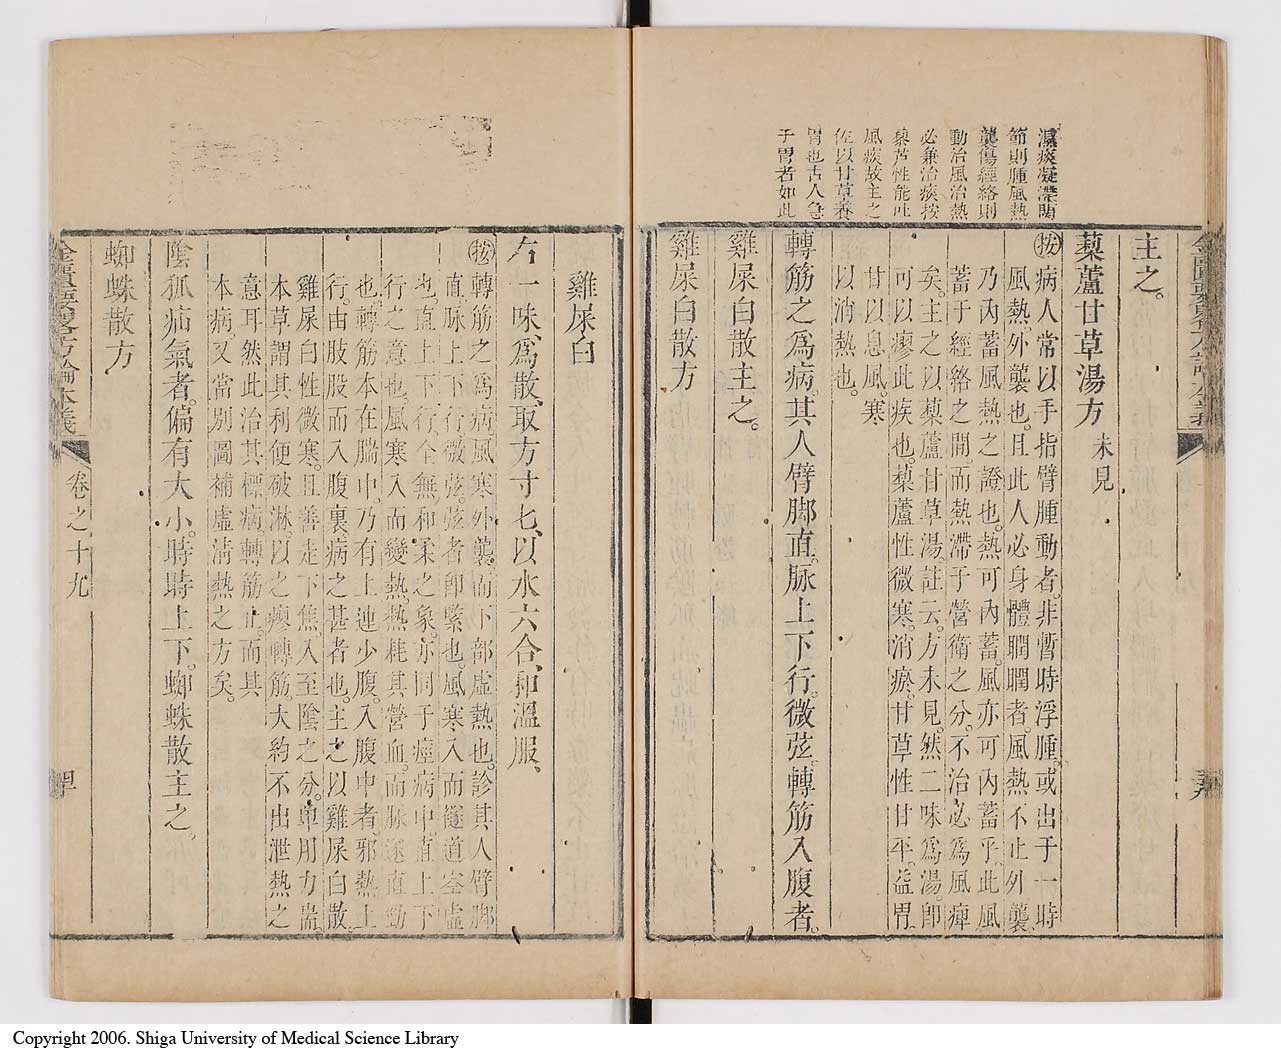 濕痰凝滯關
節則腫風熱
襲傷經絡則
動治風治熱
必兼治痰按
藜芦性能吐
風痰故主之
佐以甘草養
胃也古人急
于胃者如此
主之。
藜蘆甘草湯方 未見
按病人常以手指臂腫動者。非暫時浮腫。或出于一時
風熱。外襲也。且此人必身體瞤瞤者。風熱不止外襲。
乃內蓄風熱之證也。熱可內蓄。風亦可內蓄乎。此風
蓄于經絡之間。而熱滯于營衛之分。不治必為風痺
矣。主之以藜蘆甘草湯。註云。方未見。然二味為湯。即
可以瘳此疾也。藜蘆性微寒。消瘀。甘草性甘平。益胃。
甘以息風。寒
以消熱也。
轉筋之為病。其人臂脚直。脉上下行。微弦。轉筋入腹者。
雞屎白散主之。
雞屎白散方
雞屎白
右一味、為散、取方寸匕、以水六合、和溫服、
按轉筋之為病。風寒外襲。而下部虛熱也。診其人臂脚
直。脉上下行。微弦。弦者即緊也。風寒入而隧道空虛
也。直上下行。全無和柔之象。亦同于痙病中。直上下
行之意也。風寒入而變熱。熱耗其營血。而脉遂直勁
也。轉筋本在腨中。乃有上連少腹。入腹中者。邪熱上
行。由肢股而入腹裏。病之甚者也。主之以雞屎白散。
雞屎白性微寒。且善走下焦。入至陰之分。單用力耑。
本草謂其利便破淋。以之瘳轉筋。大約不出泄熱之
意耳。然此治其標病。轉筋止。而其
本病。又當別圖補虛清熱之方矣。
陰狐疝氣者。偏有大小。時時上下。蜘蛛散主之。
蜘蛛散方
金匱要略方論本義 卷之十九